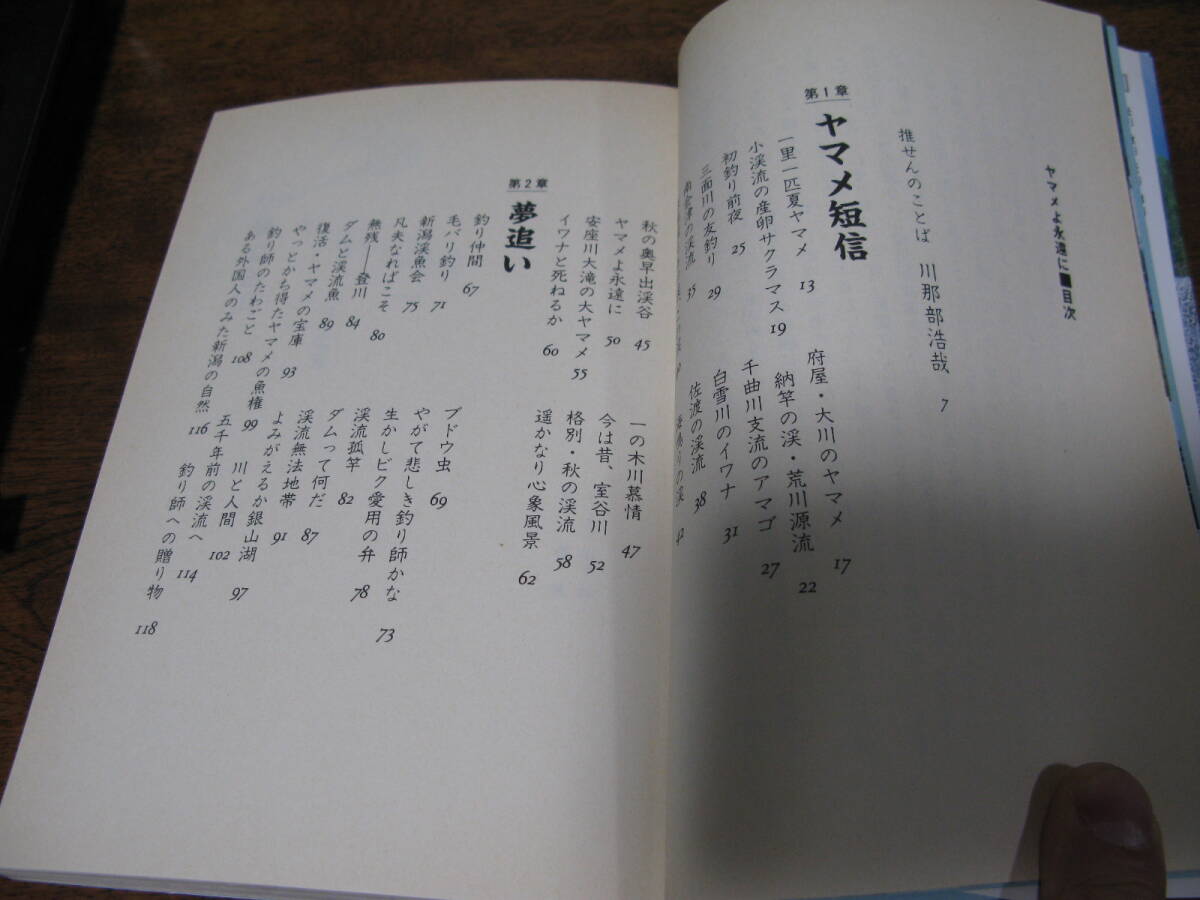 ヤマメよ永遠に■目次
推せんのことば 川那部浩哉 7
第1章 ヤマメ短信
一里一匹夏ヤマメ 13
府屋・大川のヤマメ 17
小渓流の産卵サクラマス 19
納竿の渓・荒川源流 22
初釣り前夜 25
千曲川支流のアマゴ 27
三面川の友釣り 29
白雪川のイワナ 31
南会津の渓流 35
佐渡の渓流 38
42
秋の奥早出渓谷 45
一の木川慕情 47
ヤマメよ永遠に 50
今は昔、室谷川 52
安座川大滝の大ヤマメ 55
格別・秋の渓流 58
イワナと死ねるか 60
遥かなり心象風景 62
第2章 夢追い
釣り仲間 67
ブドウ虫 69
毛バリ釣り 71
やがて悲しき釣り師かな 73
新潟渓魚会 75
生かしビク愛用の弁 78
凡夫なればこそ 80
渓流孤竿 82
無残――登川 84
ダムって何だ 87
ダムと渓流魚 89
渓流無法地帯 91
復活・ヤマメの宝庫 93
よみがえるか銀山湖 97
やっとかち得たヤマメの魚権 99
川と人間 102
釣り師のたわごと 108
五千年前の渓流へ 114
ある外国人のみた新潟の自然 116
釣り師への贈り物 118